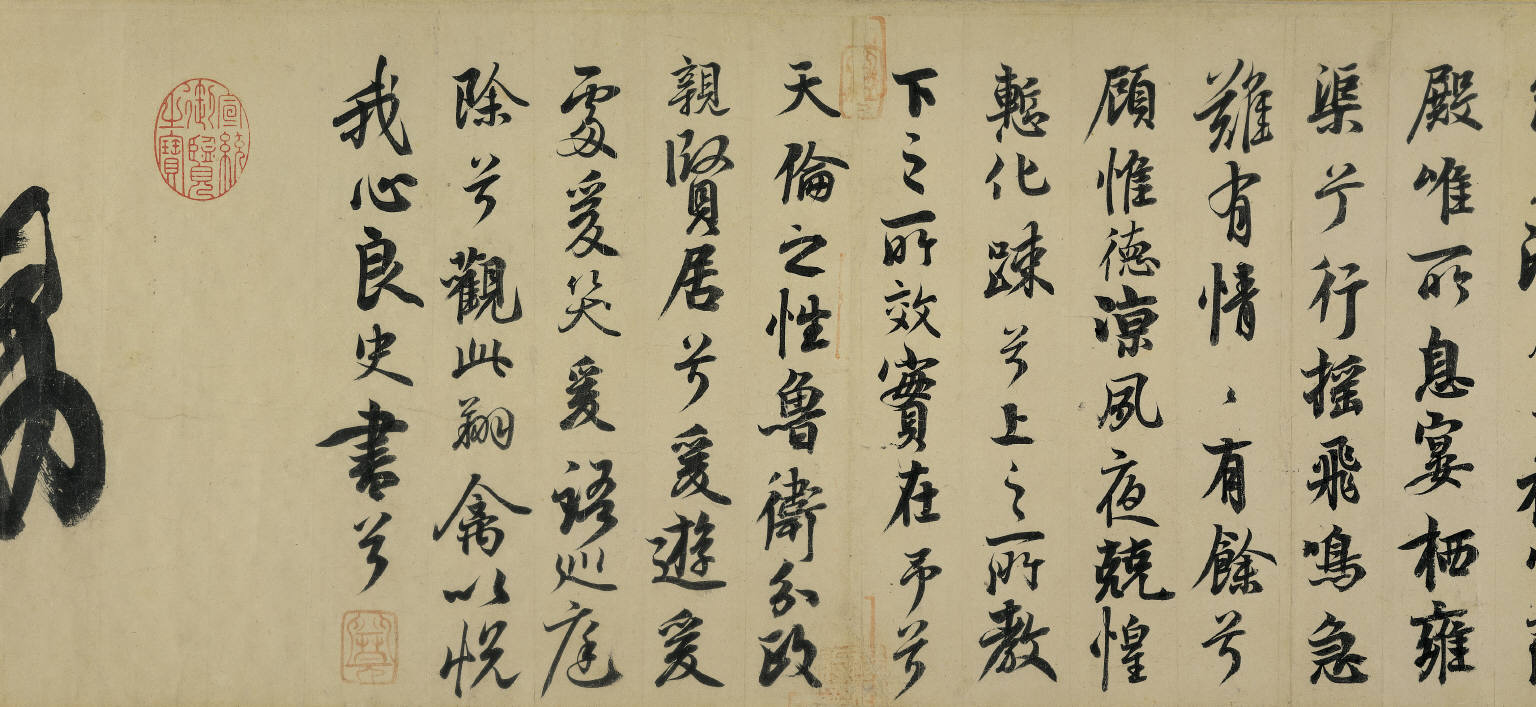 殿唯所息宴栖雍
渠兮行摇飛鳴急
難有情〻有餘兮
顧惟德凉夙夜兢惶
慙化踈兮上之所教
下之所效實在予兮
天倫之性魯衛分政
親賢居兮爰遊爰
處爰笑爰語巡庭
除兮觀此翔禽以悅
我心良史書兮
宣統御覽之寶